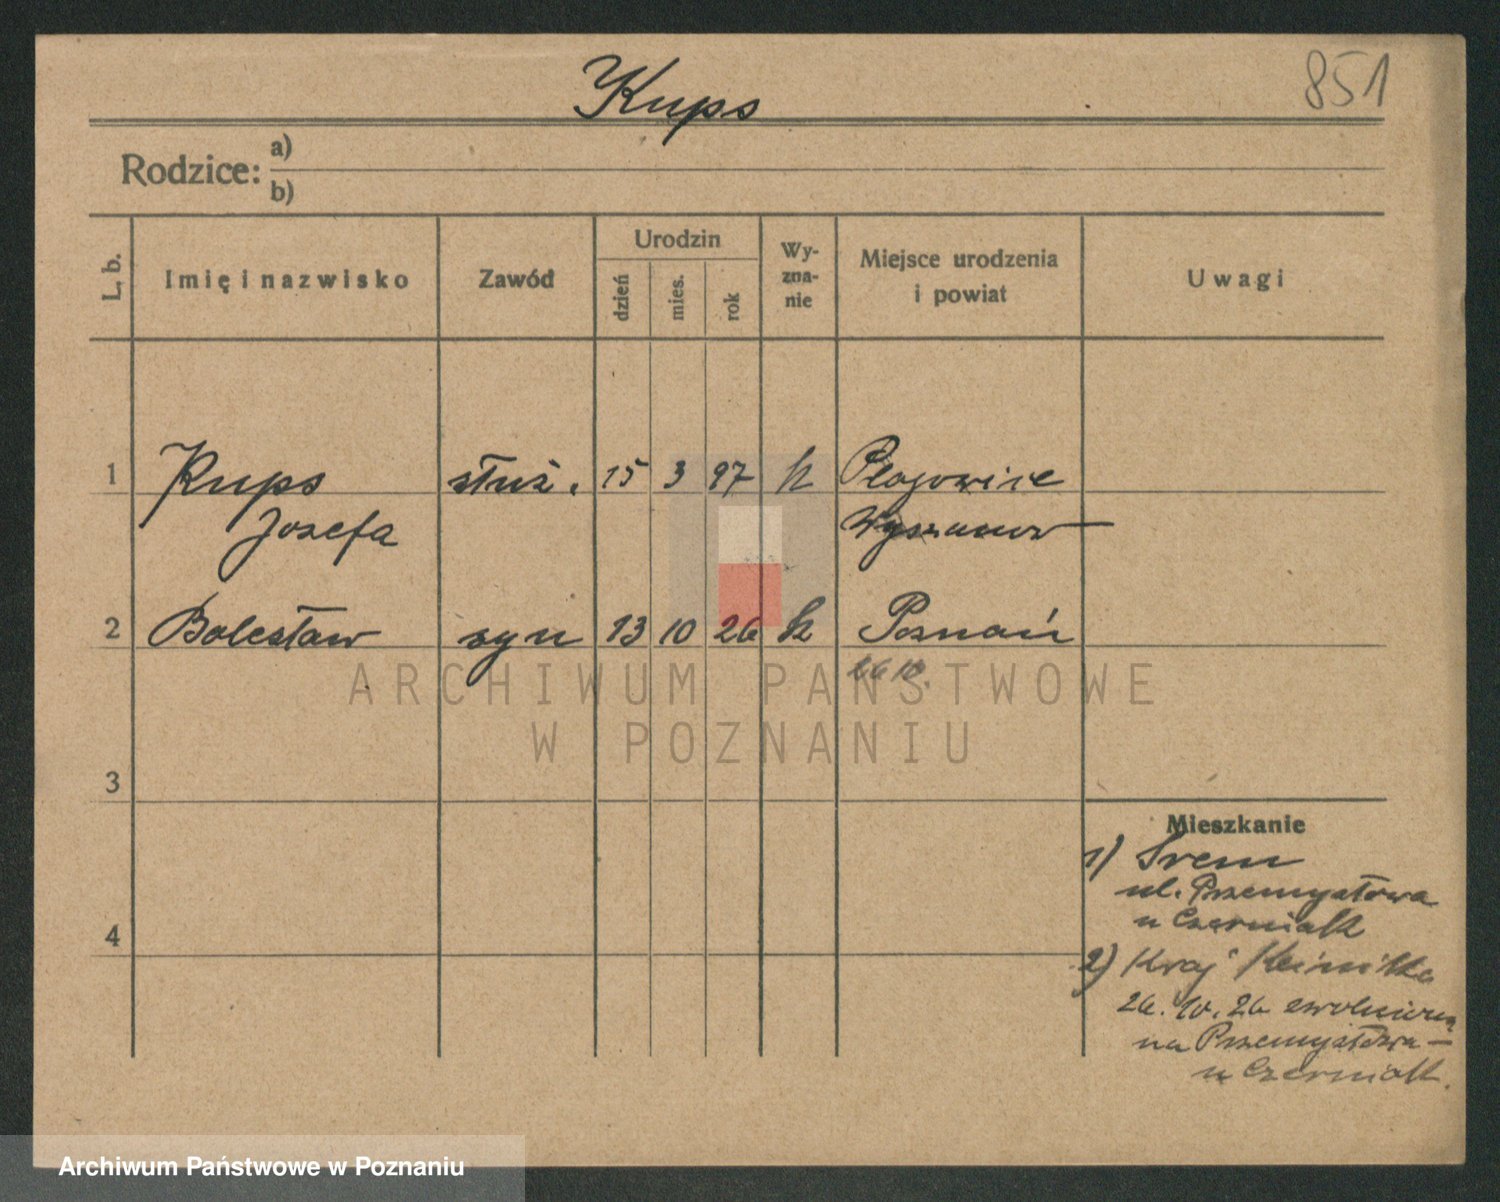 Kups
851
Rodzice: a)
b)
L. b.
Imię i nazwisko
Zawód
Urodzin
dzień
mies.
rok
Wy-
zna-
nie
Miejsce urodzenia
i powiat
Uwagi
1 Kups służ. 15 3 97 k
Josefa
2 Bolesław syn 13 10 26 k Poznań
26 10.
ARCHIWUM PAŃSTWOWE
W POZNANIU
3
Mieszkanie
1) Śrem
ul. Przemysłowa
u Czerniak
4
2) Kraj
26. 10. 26
na Przemysłowa –
u Czerniak.
Archiwum Państwowe w Poznaniu